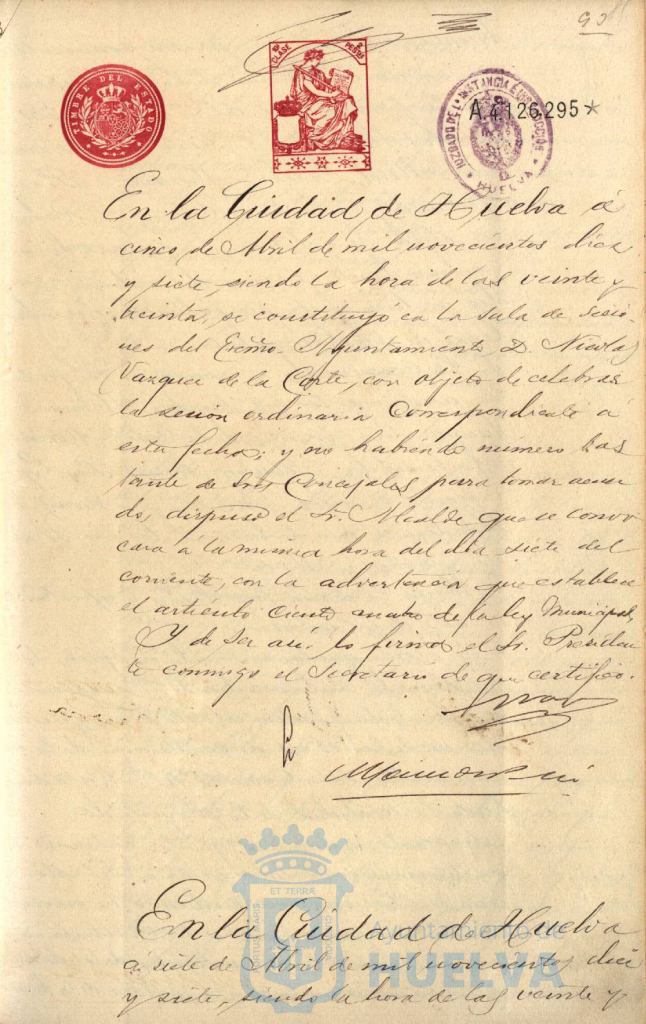 90
TIMBRE DEL ESTADO
10ª CLASE
2 PESETAS
JUZGADO DE 1ª INSTANCIA É INSTRUCCIÓN
HUELVA
A.4,126,295*
En la Ciudad de Huelva á
cinco de Abril de mil novecientos diez
y siete, siendo la hora de las veinte y
treinta, se constituyó en la sala de sesio-
nes del Excmo. Ayuntamiento D. Nicolas
Vazquez de la Corte, con objeto de celebrar
la sesion ordinaria correspondiente á
esta fecha; y no habiendo numero bas
tante de Sres Concejales para tomar acuer
do, dispuso el Sr. Alcalde que se convo
cara á la misma hora del dia siete del
corriente, con la advertencia que establece
el artículo ciento cuatro de la ley Municipal.
Y de ser así lo firma el Sr. Presiden
te conmigo el Secretario de que certifico.
En la Ciudad de Huelva
á siete de Abril de mil novecientos diez
y siete, siendo la hora de las veinte y
ET TERRÆ
Ayuntamiento de
HUELVA